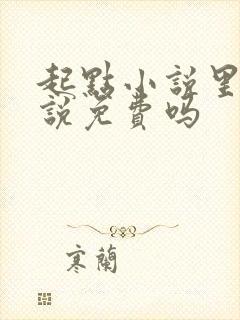 起點小説里
説免費嗎
寒蘭